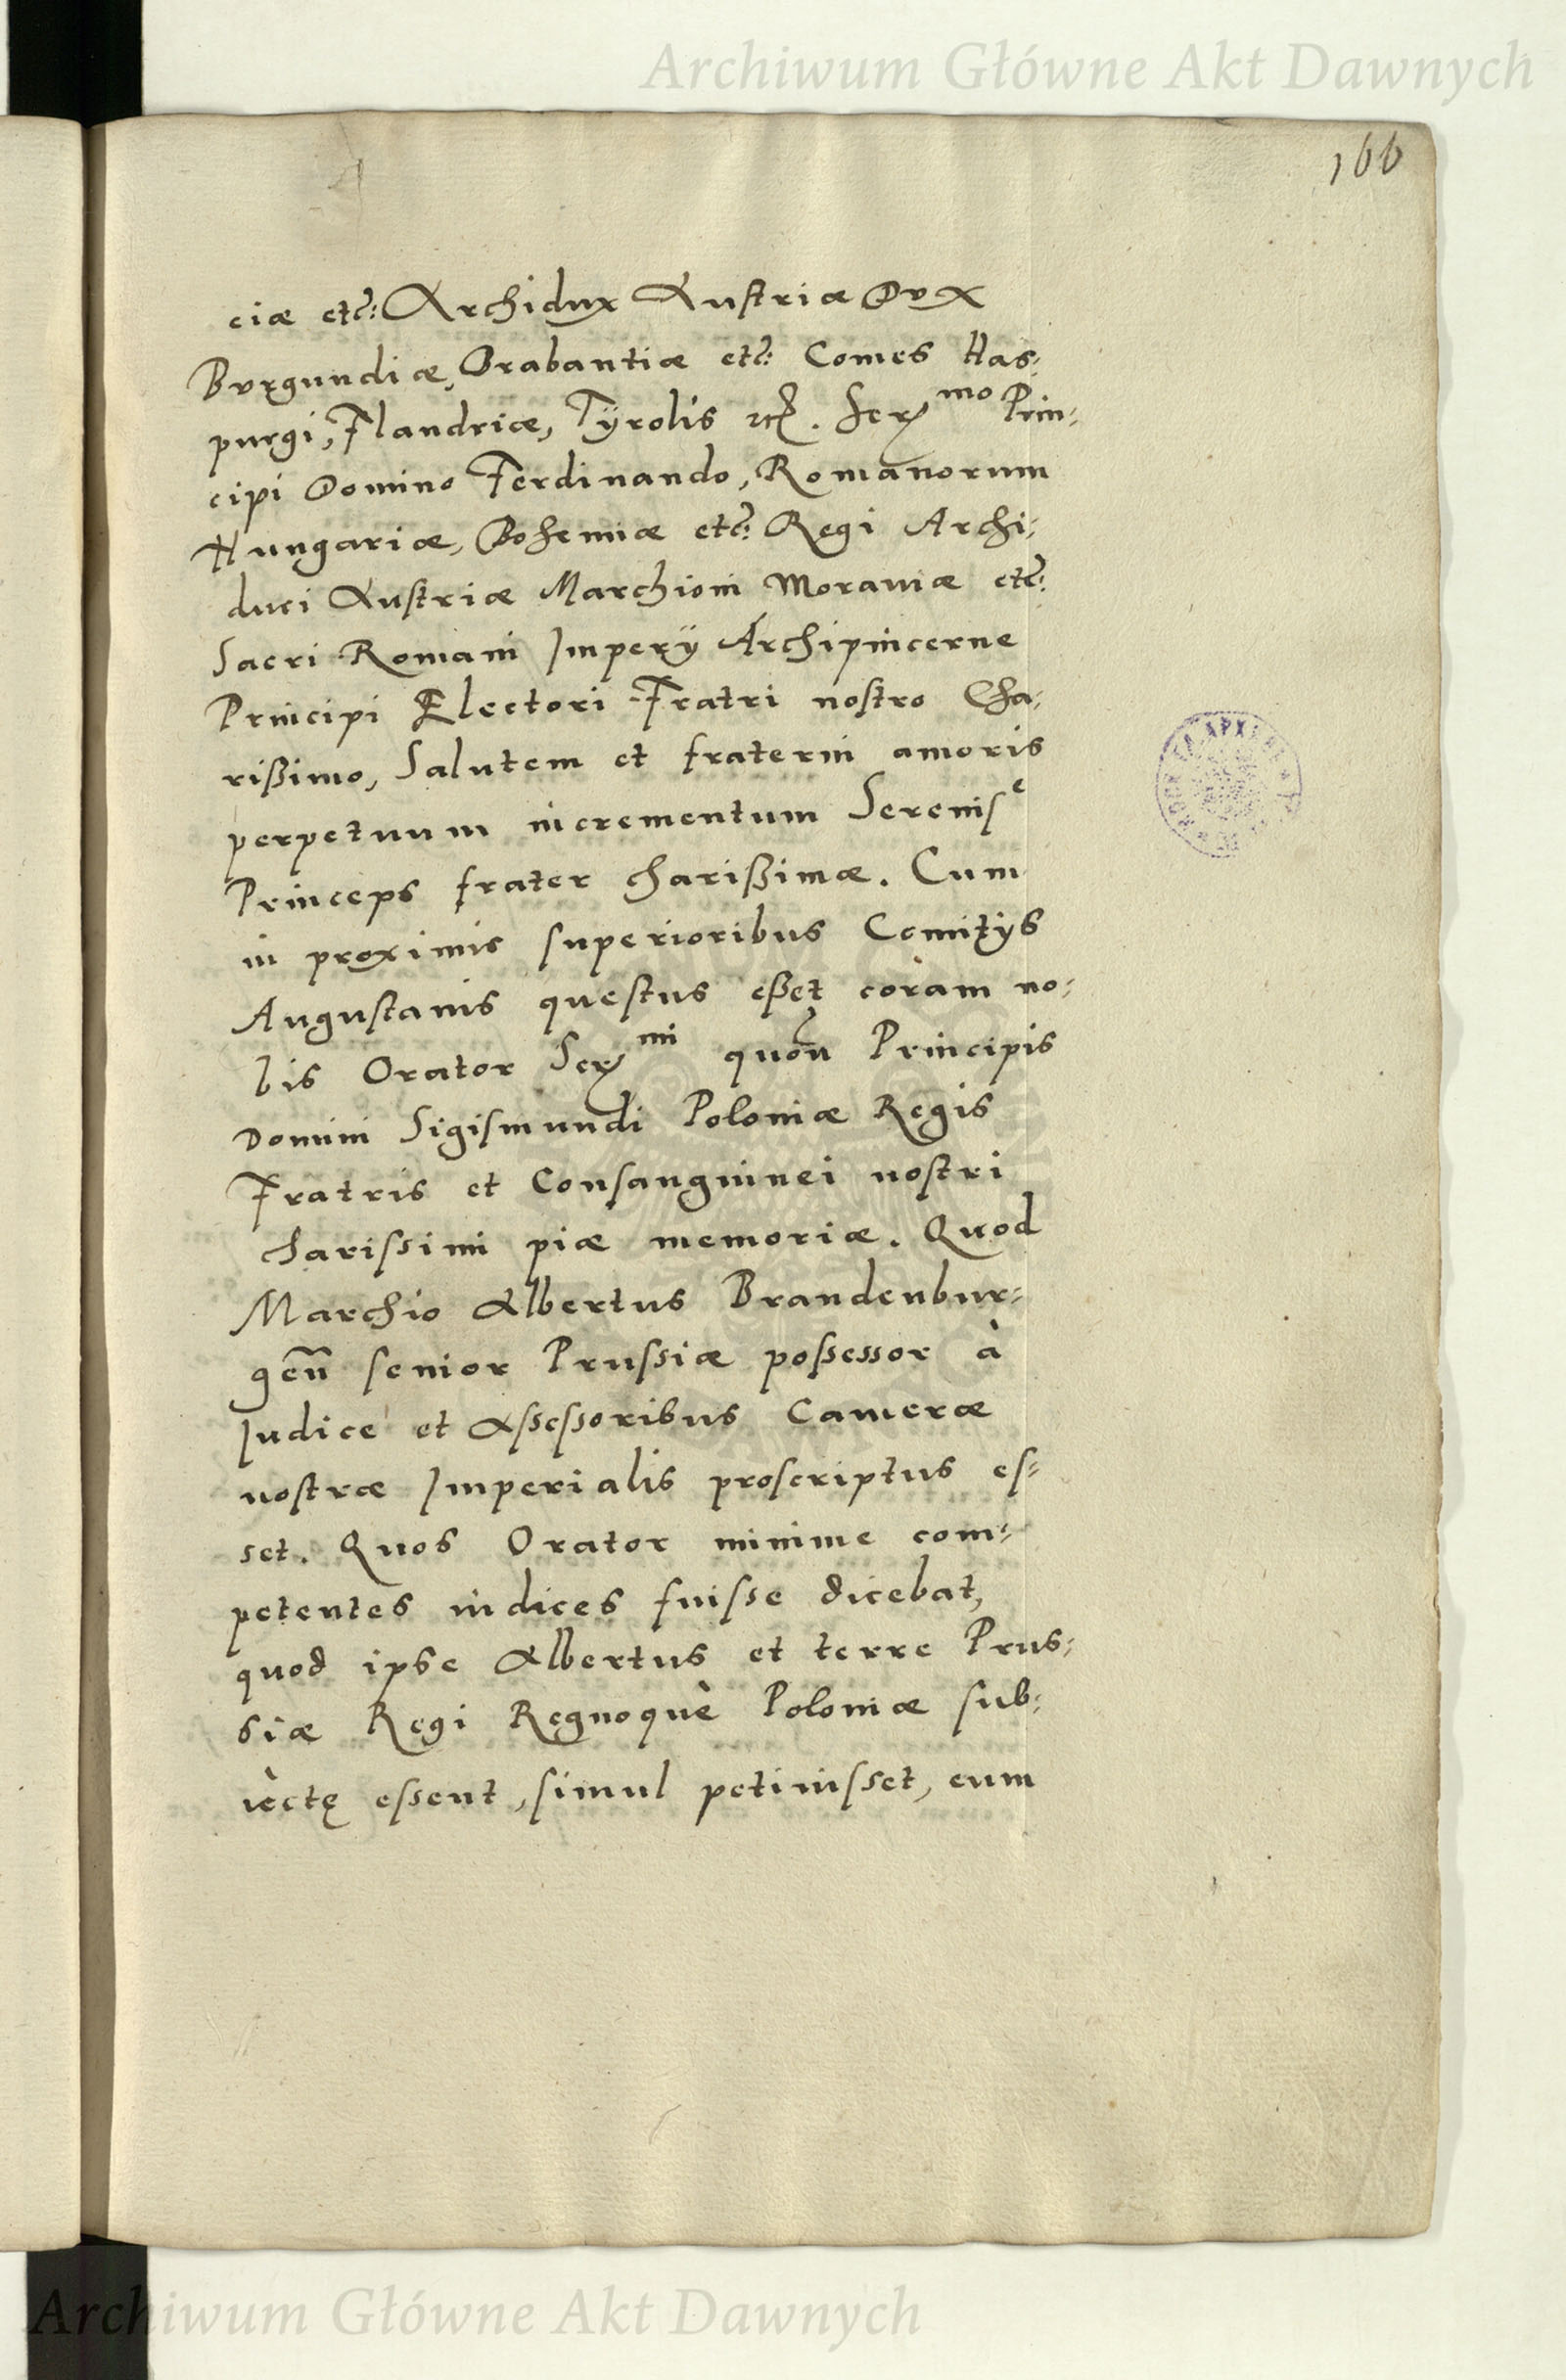 Archiwum Główne Akt Dawnych
166
ciæ etc: Archidux Austriæ Dux
Burgundiæ, Brabantiæ etc: Comes Has:
purgi, Flandriæ, Tÿrolis etc. Ser^mo Prin:
cipi Domino Ferdinando, Romanorum
Hungariæ, Bohemiæ etc: Regi Archi:
duci Austriæ Marchioni Moraviæ etc:
Sacri Romani Imperÿ Archipincerne
Principi Electori Fratri nostro Cha:
rißimo, Salutem et fraterni amoris
perpetuum incrementum Serenis^e
Princeps frater charißimæ. Cum
in proximis superioribus Comitÿs
Augustanis questus eßet coràm no:
bis Orator Ser^mi quon̄ Principis
Domini Sigismundi Poloniæ Regis
Fratris et Consanguinei nostri
charissimi piæ memoriæ. Quod
Marchio Albertus Brandenbur:
gen̄ senior Prussiæ possessor à
Iudice et Assessoribus Cameræ
nostræ Imperialis proscriptus es:
set. Quos Orator minime com:
petentes iudices fuisse dicebat,
quod ipse Albertus et terre Prus:
siæ Regi Regnoquè Poloniæ sub:
iectę essent, simul petiuisset, eum
Archiwum Główne Akt Dawnych